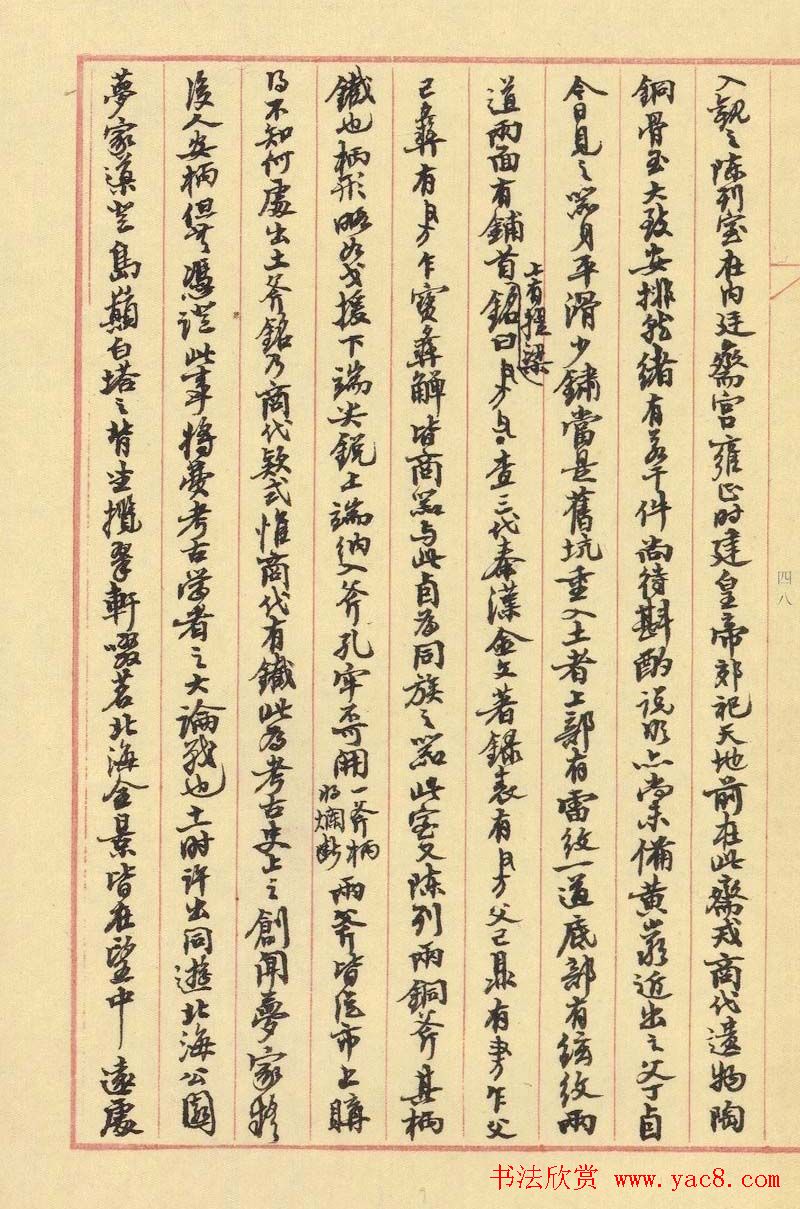 入觀之陈列室在内廷齋宫雍正时建皇帝郊祀天地前在此齋戒商代遺物陶
銅骨玉大致安排就绪有若干件尚待斟酌说明点尚未備黄岩近出之父丁卣
今日見之器身平滑少鏽當是舊坑重入土者上部有雷紋一道底部有弦紋兩
道兩面有鋪首銘曰 查三代秦漢金文著録表有 父己鼎有 乍父
上有提梁
己彝有 乍寶彝觶皆商器与此卣爲同族之器此室又陈列兩銅斧其柄
鐵也柄形略如戈援下端尖鋭上端納入斧孔牢不可開 兩斧皆從市上購
一斧柄
已爛斷
得不知何處出土斧銘乃商代款式惟商代有鐵此爲考古史上之創聞夢家疑
後人安柄但無憑證此事將費考古学者之大論戰也十时许出同遊北海公園
夢家導登島巔白塔之背坐攬翠軒啜茗北海全景皆在望中遠處
四八
书法欣赏 www.yac8.com